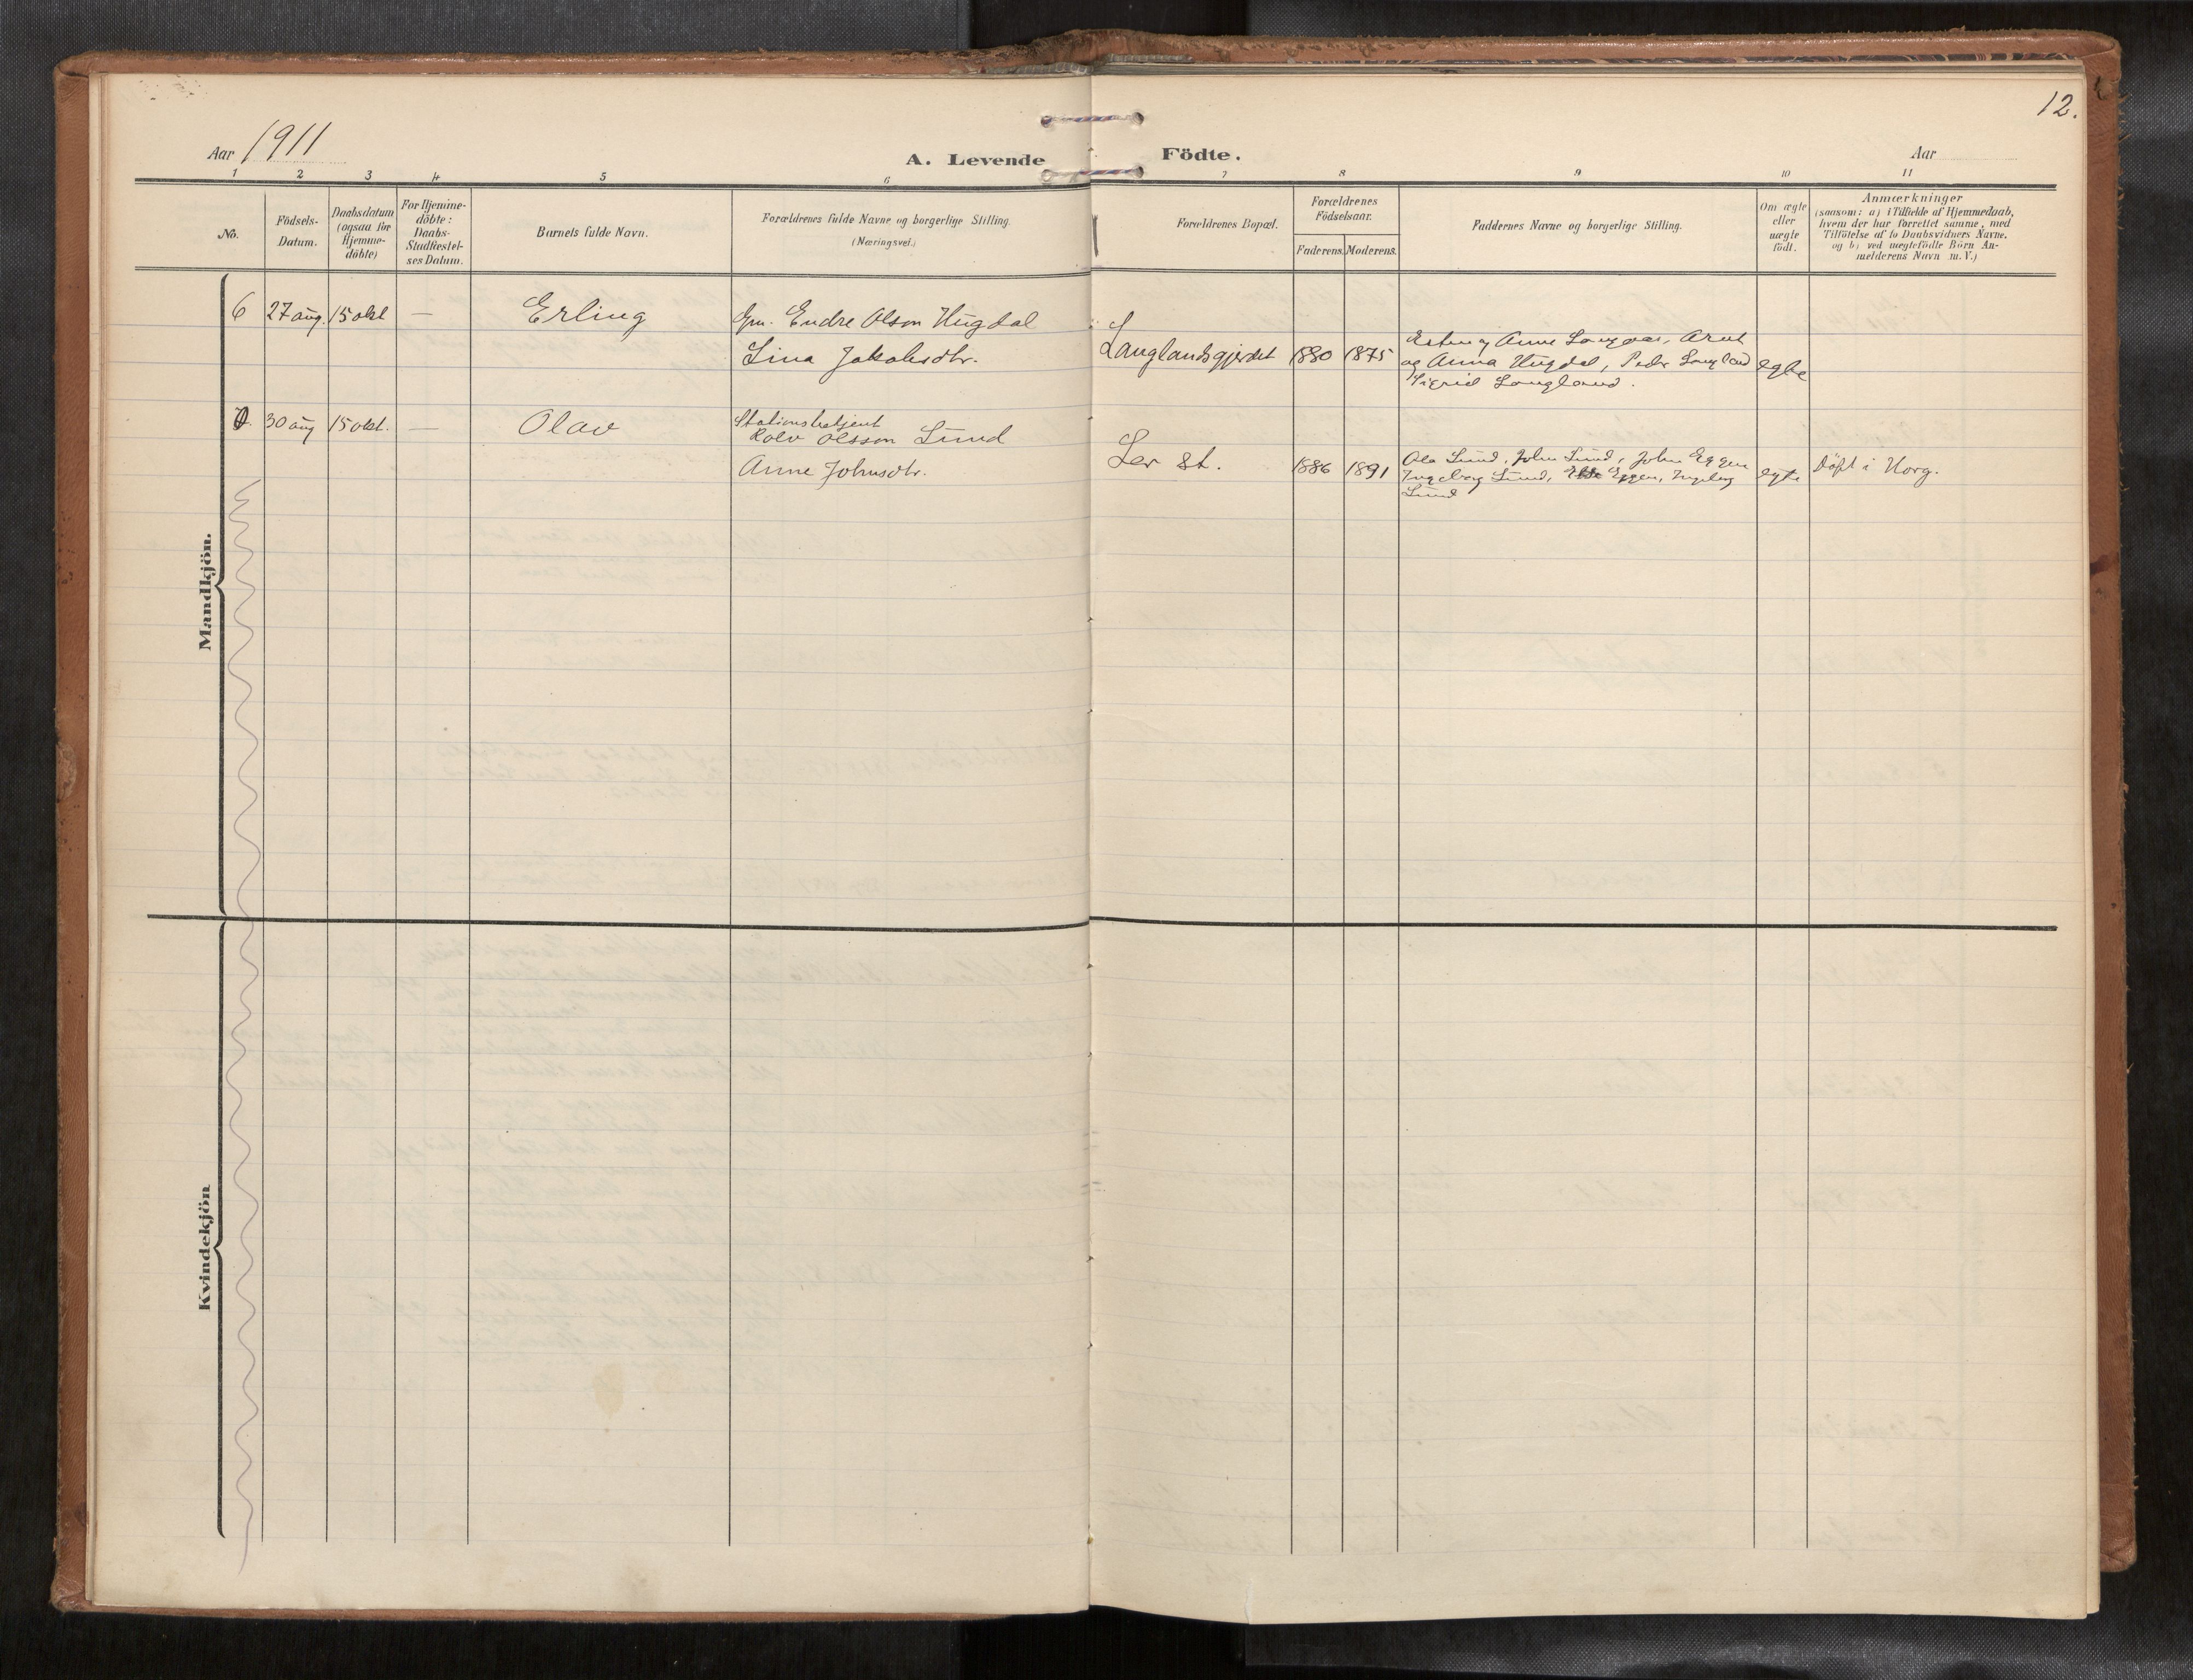 12.
Aar 1911
A. Levende Födte.
Aar
1 2 3 4 5 6 7 8 9 10 11
No.
Födsels-
Datum.
Daabsdatum
(ogsaa for
Hjemme-
döbte)
For Hjemme-
döbte:
Daabs-
Stadfæstel-
ses Datum.
Barnets fulde Navn.
Forældrenes fulde Navne og borgerlige Stilling.
(Næringsvei.)
Forældrenes Bopæl.
Forældrenes
Födselsaar.
Faderens. Moderens.
Faddernes Navne og borgerlige Stilling.
Om ægte
eller
uægte
födt.
Anmærkninger
(saasom: a) i Tilfælde af Hjemmedaab,
hvem der har forrettet samme, med
Tilföielse af to Daabsvidners Navne.
og b) ved uægtefödte Börn An-
melderens Navn m. V.)
Mandkjön.
6 27 aug. 15 okt — Erling
Gm. Endre Olson Hugdal
Lina Jakobsdtr.
Langlandsgjerdet 1880 1875
Esten og Anne Langaas, Arnt
og Anna Hugdal, Peder Langland
Sigrid Langland.
egte
0. 30 aug 15 okt. — Olav
Stationsbetjent
Rolv Olsson Lund
Anne Johnsdtr.
Ler St. 1886 1891
Ole Lund, John Lund, John Eggen
Ingeborg Lund, Eggen, Ingeborg
Lund
egte
Döpt i Horg.
Kvindekjön